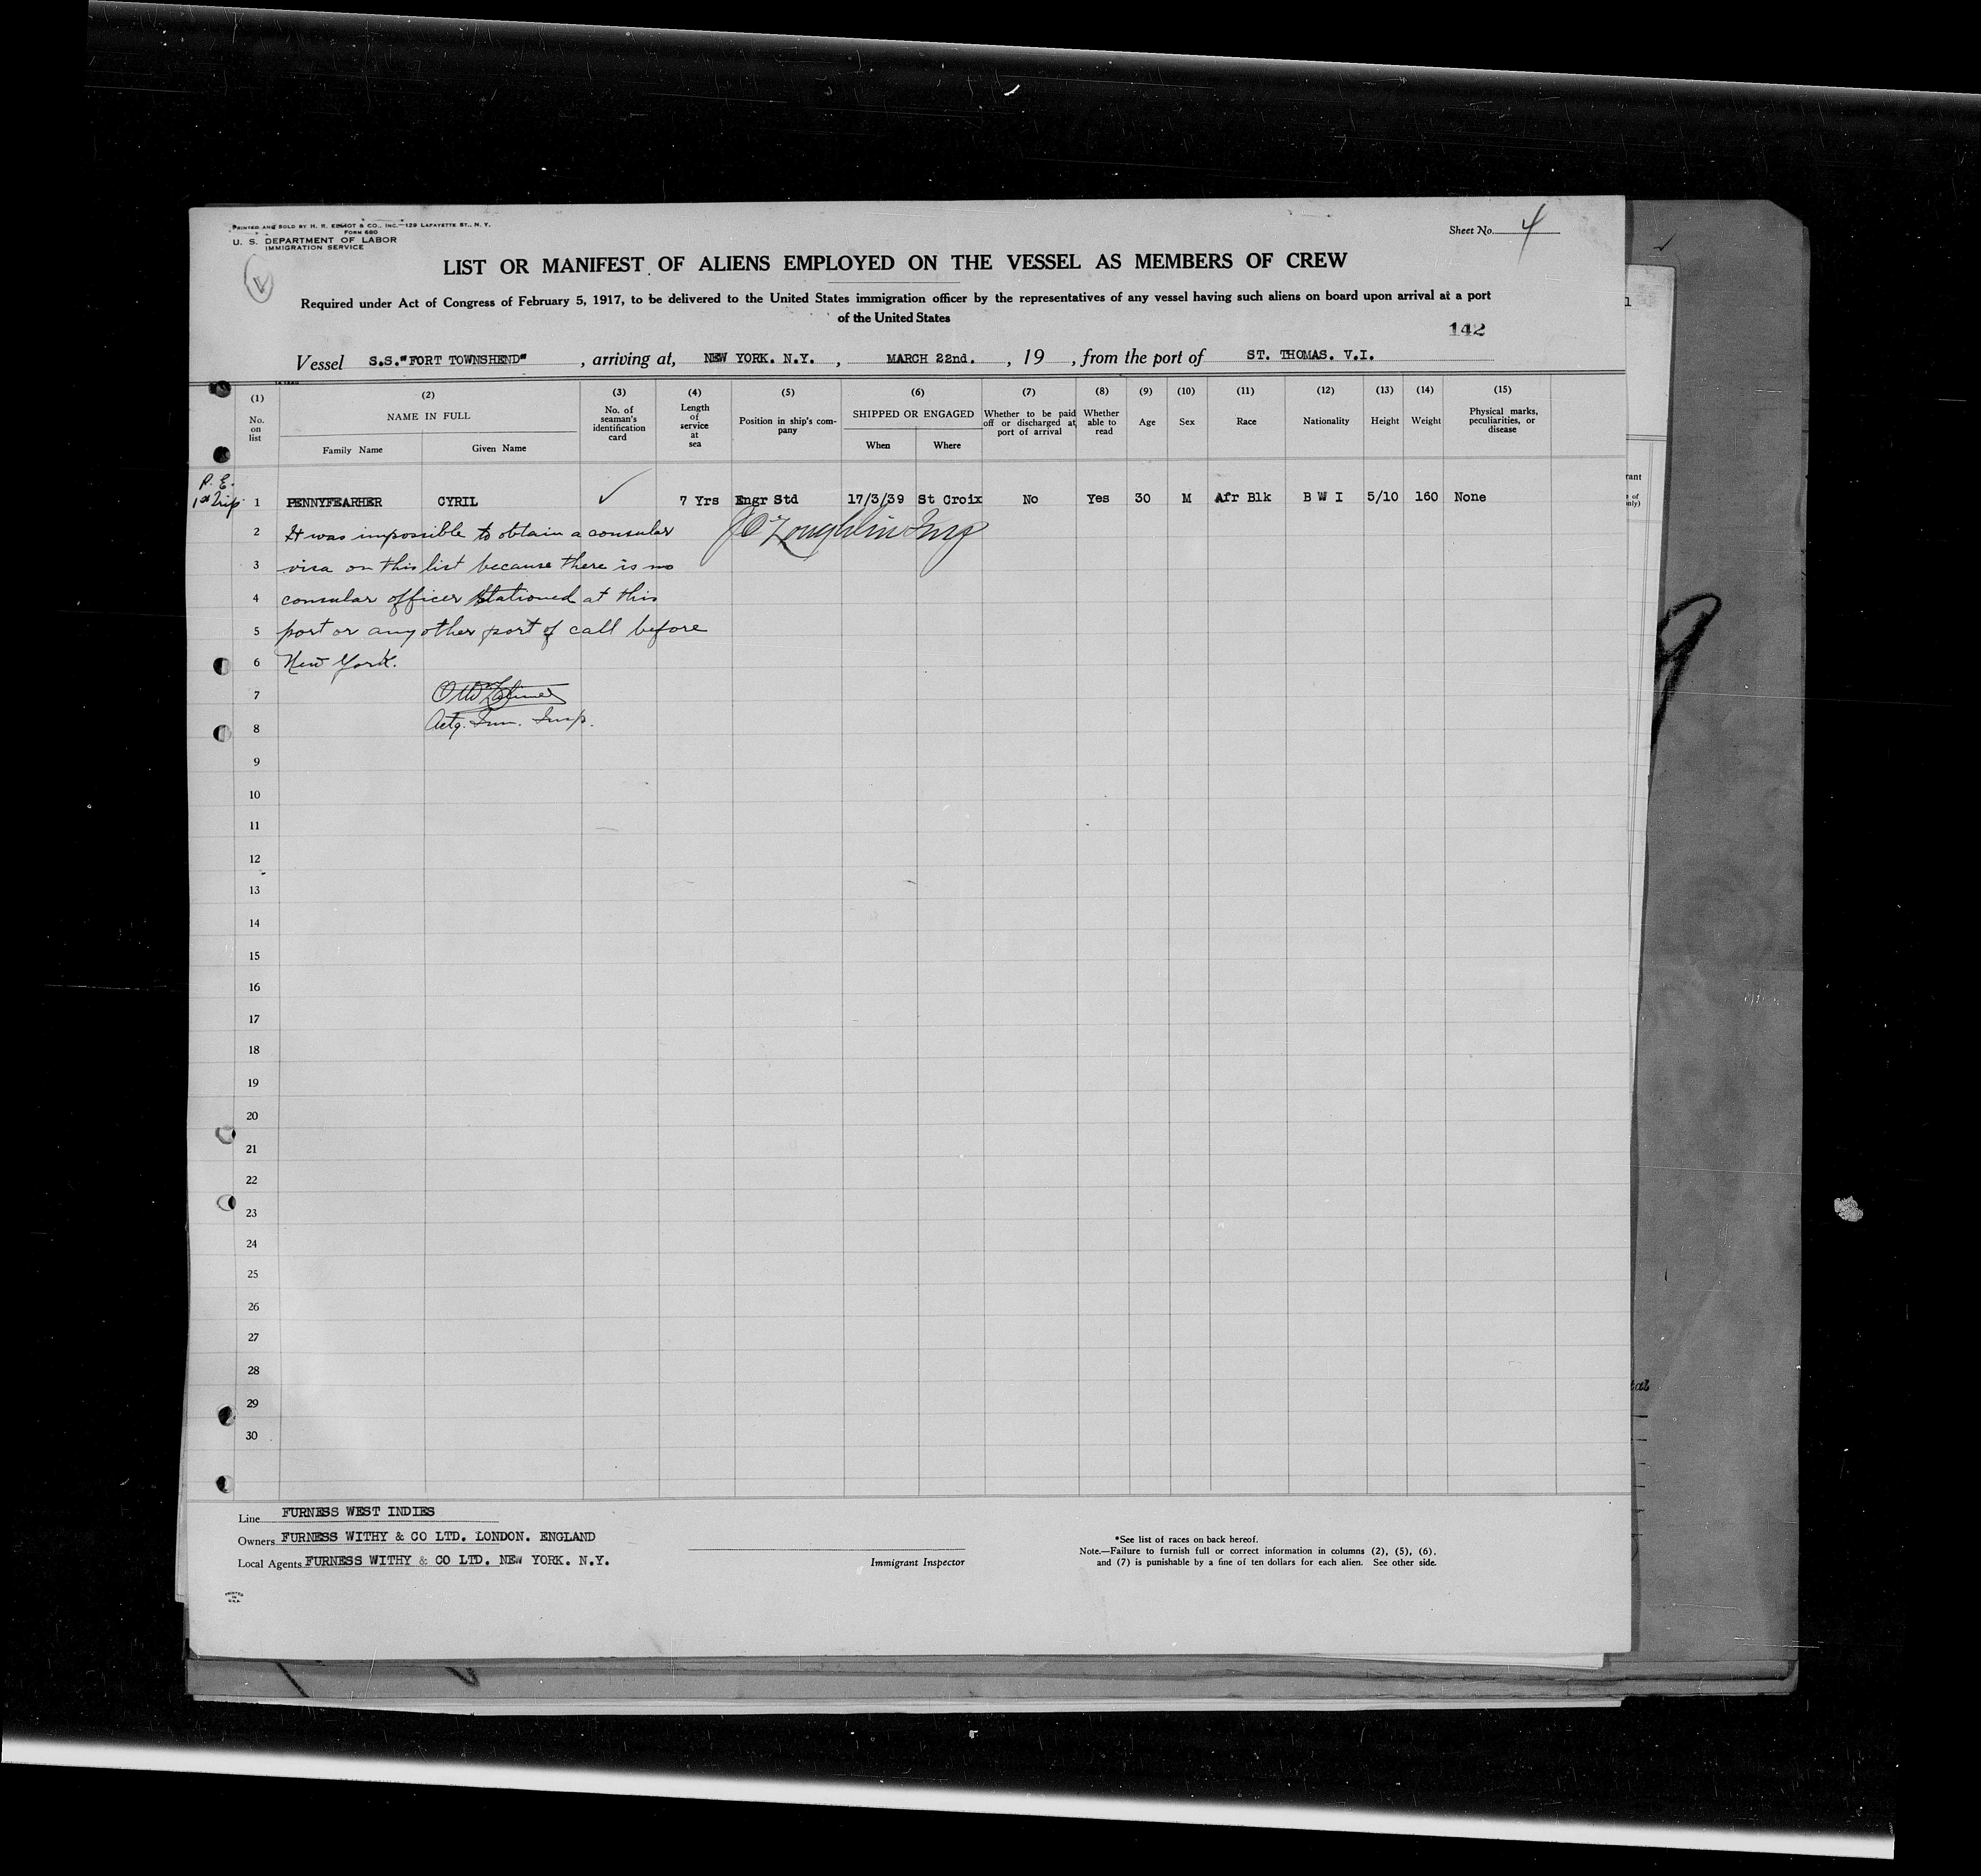 PRINTED AND SOLD BY H. R. ELLIOT & CO., INC.—129 LAFAYETTE ST., N. Y.
FORM 680
U. S. DEPARTMENT OF LABOR
IMMIGRATION SERVICE
Sheet No. 4
LIST OR MANIFEST OF ALIENS EMPLOYED ON THE VESSEL AS MEMBERS OF CREW
Required under Act of Congress of February 5, 1917, to be delivered to the United States immigration officer by the representatives of any vessel having such aliens on board upon arrival at a port
of the United States
142
Vessel S.S."FORT TOWNSHEND" , arriving at, NEW YORK. N.Y. , MARCH 22nd. , 19 , from the port of ST. THOMAS. V.I.
(1) (2) (3) (4) (5) (6) (7) (8) (9) (10) (11) (12) (13) (14) (15)
No. on list NAME IN FULL Family Name Given Name No. of seaman's identification card Length of service at sea Position in ship's company SHIPPED OR ENGAGED When Where Whether to be paid off or discharged at port of arrival Whether able to read Age Sex Race Nationality Height Weight Physical marks, peculiarities, or disease
P. E.
1st Trip 1 PENNYFEARHER CYRIL ✓ 7 Yrs Engr Std 17/3/39 St Croix No Yes 30 M Afr Blk B W I 5/10 160 None
2 It was impossible to obtain a consular
3 visa on this list because there is no
4 consular officer stationed at this
5 port or any other port of call before
6 New York.
7
8 Actg. Imm. Insp.
9
10
11
12
13
14
15
16
17
18
19
20
21
22
23
24
25
26
27
28
29
30
Line FURNESS WEST INDIES
Owners FURNESS WITHY & CO LTD. LONDON. ENGLAND
Local Agents FURNESS WITHY & CO LTD. NEW YORK. N.Y.
Immigrant Inspector
*See list of races on back hereof.
Note.—Failure to furnish full or correct information in columns (2), (5), (6),
and (7) is punishable by a fine of ten dollars for each alien. See other side.
PRINTED
IN
U.S.A.